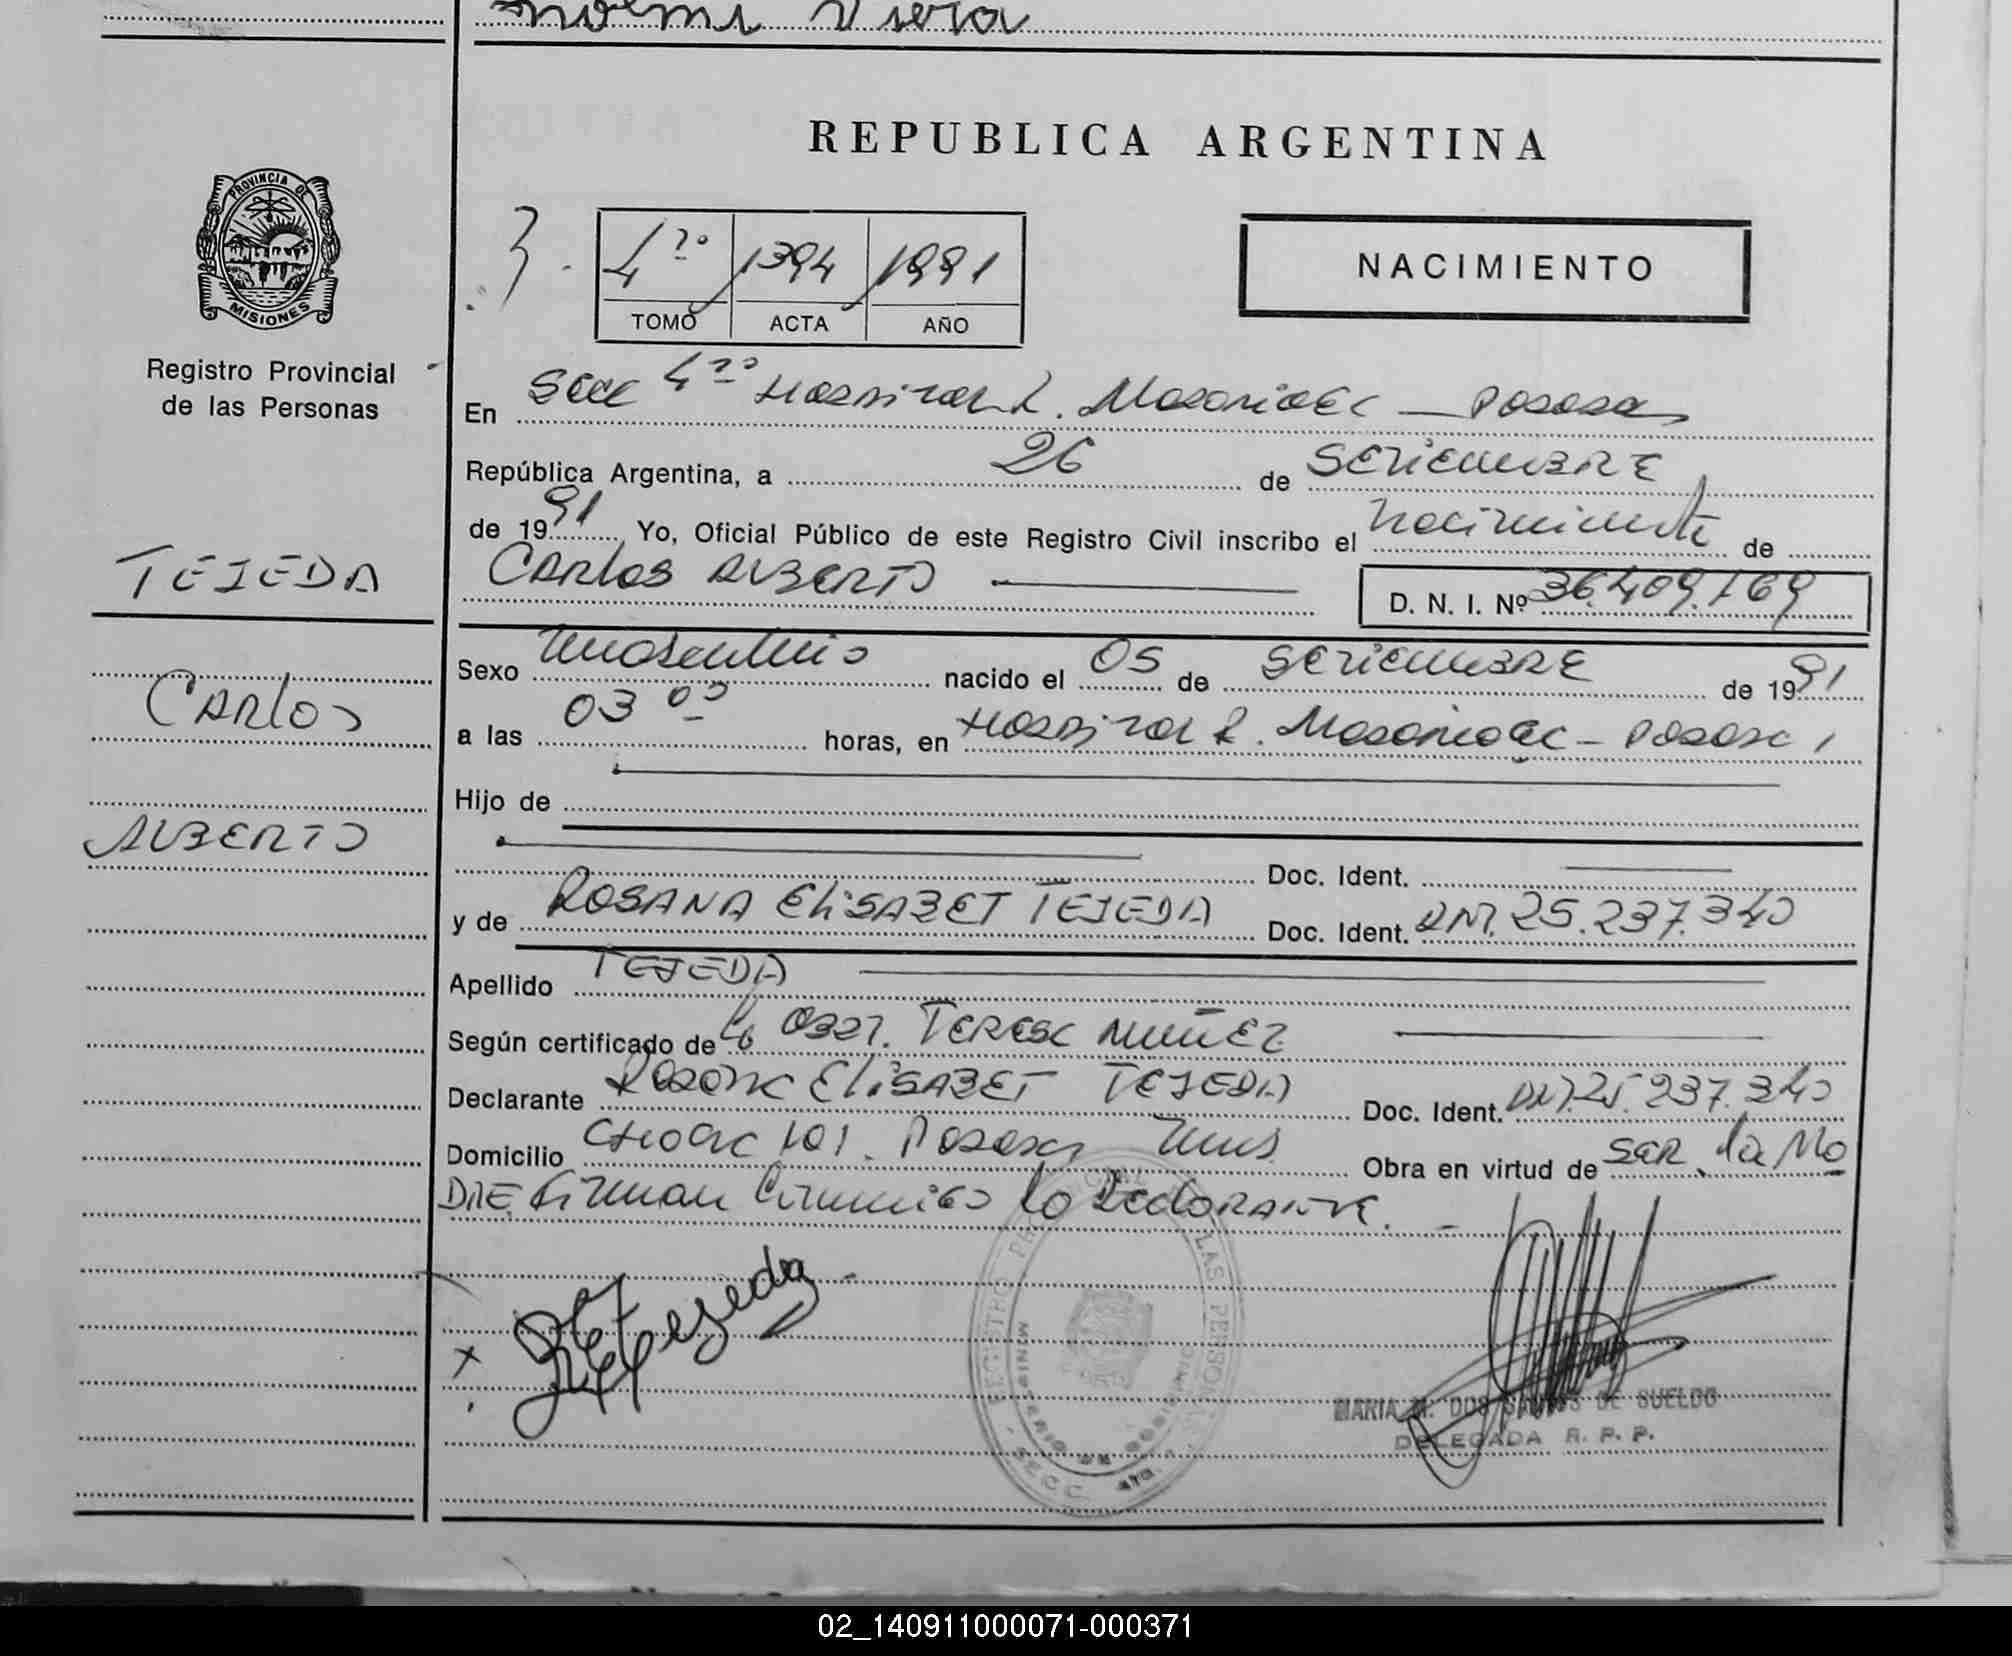 Noemi Viera
REPUBLICA ARGENTINA
PROVINCIA DE
MISIONES
Registro Provincial
de las Personas
3.
4ta 1394 1991
TOMO ACTA AÑO
NACIMIENTO
En Secc 4ta Hospital R. Madariaga — Posadas
República Argentina, a 26 de SETIEMBRE
de 1991 Yo, Oficial Público de este Registro Civil inscribo el nacimiento de
CARLOS ALBERTO
D. N. I. Nº 36.409.169
TEJEDA
CARLOS
ALBERTO
Sexo Masculino nacido el 05 de SETIEMBRE de 1991
a las 03 00 horas, en Hospital R. Madariaga - Posadas
Hijo de
Doc. Ident.
y de ROSANA ELISABET TEJEDA Doc. Ident. DNI. 25.237.340
Apellido TEJEDA
Según certificado de la OBST. TERESA NUÑEZ
Declarante Rosana ELISABET TEJEDA Doc. Ident. DNI. 25.237.340
Domicilio 101. Posadas Mnes Obra en virtud de SER la MA
DRE. Firman Conmigo la Declarante.
Tejeda
REGISTRO PROVINCIAL DE LAS PERSONAS
MINISTERIO DE GOBIERNO
SECC. 4ta.
MARIA M. DOS SANTOS DE SUELDO
DELEGADA R. P. P.
02_140911000071-000371